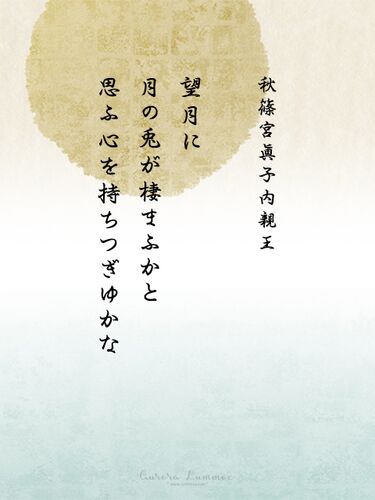 秋篠宮眞子内親王
望月に
月の兎が棲まふかと
思ふ心を持ちつぎゆかな
Aurora Lummox